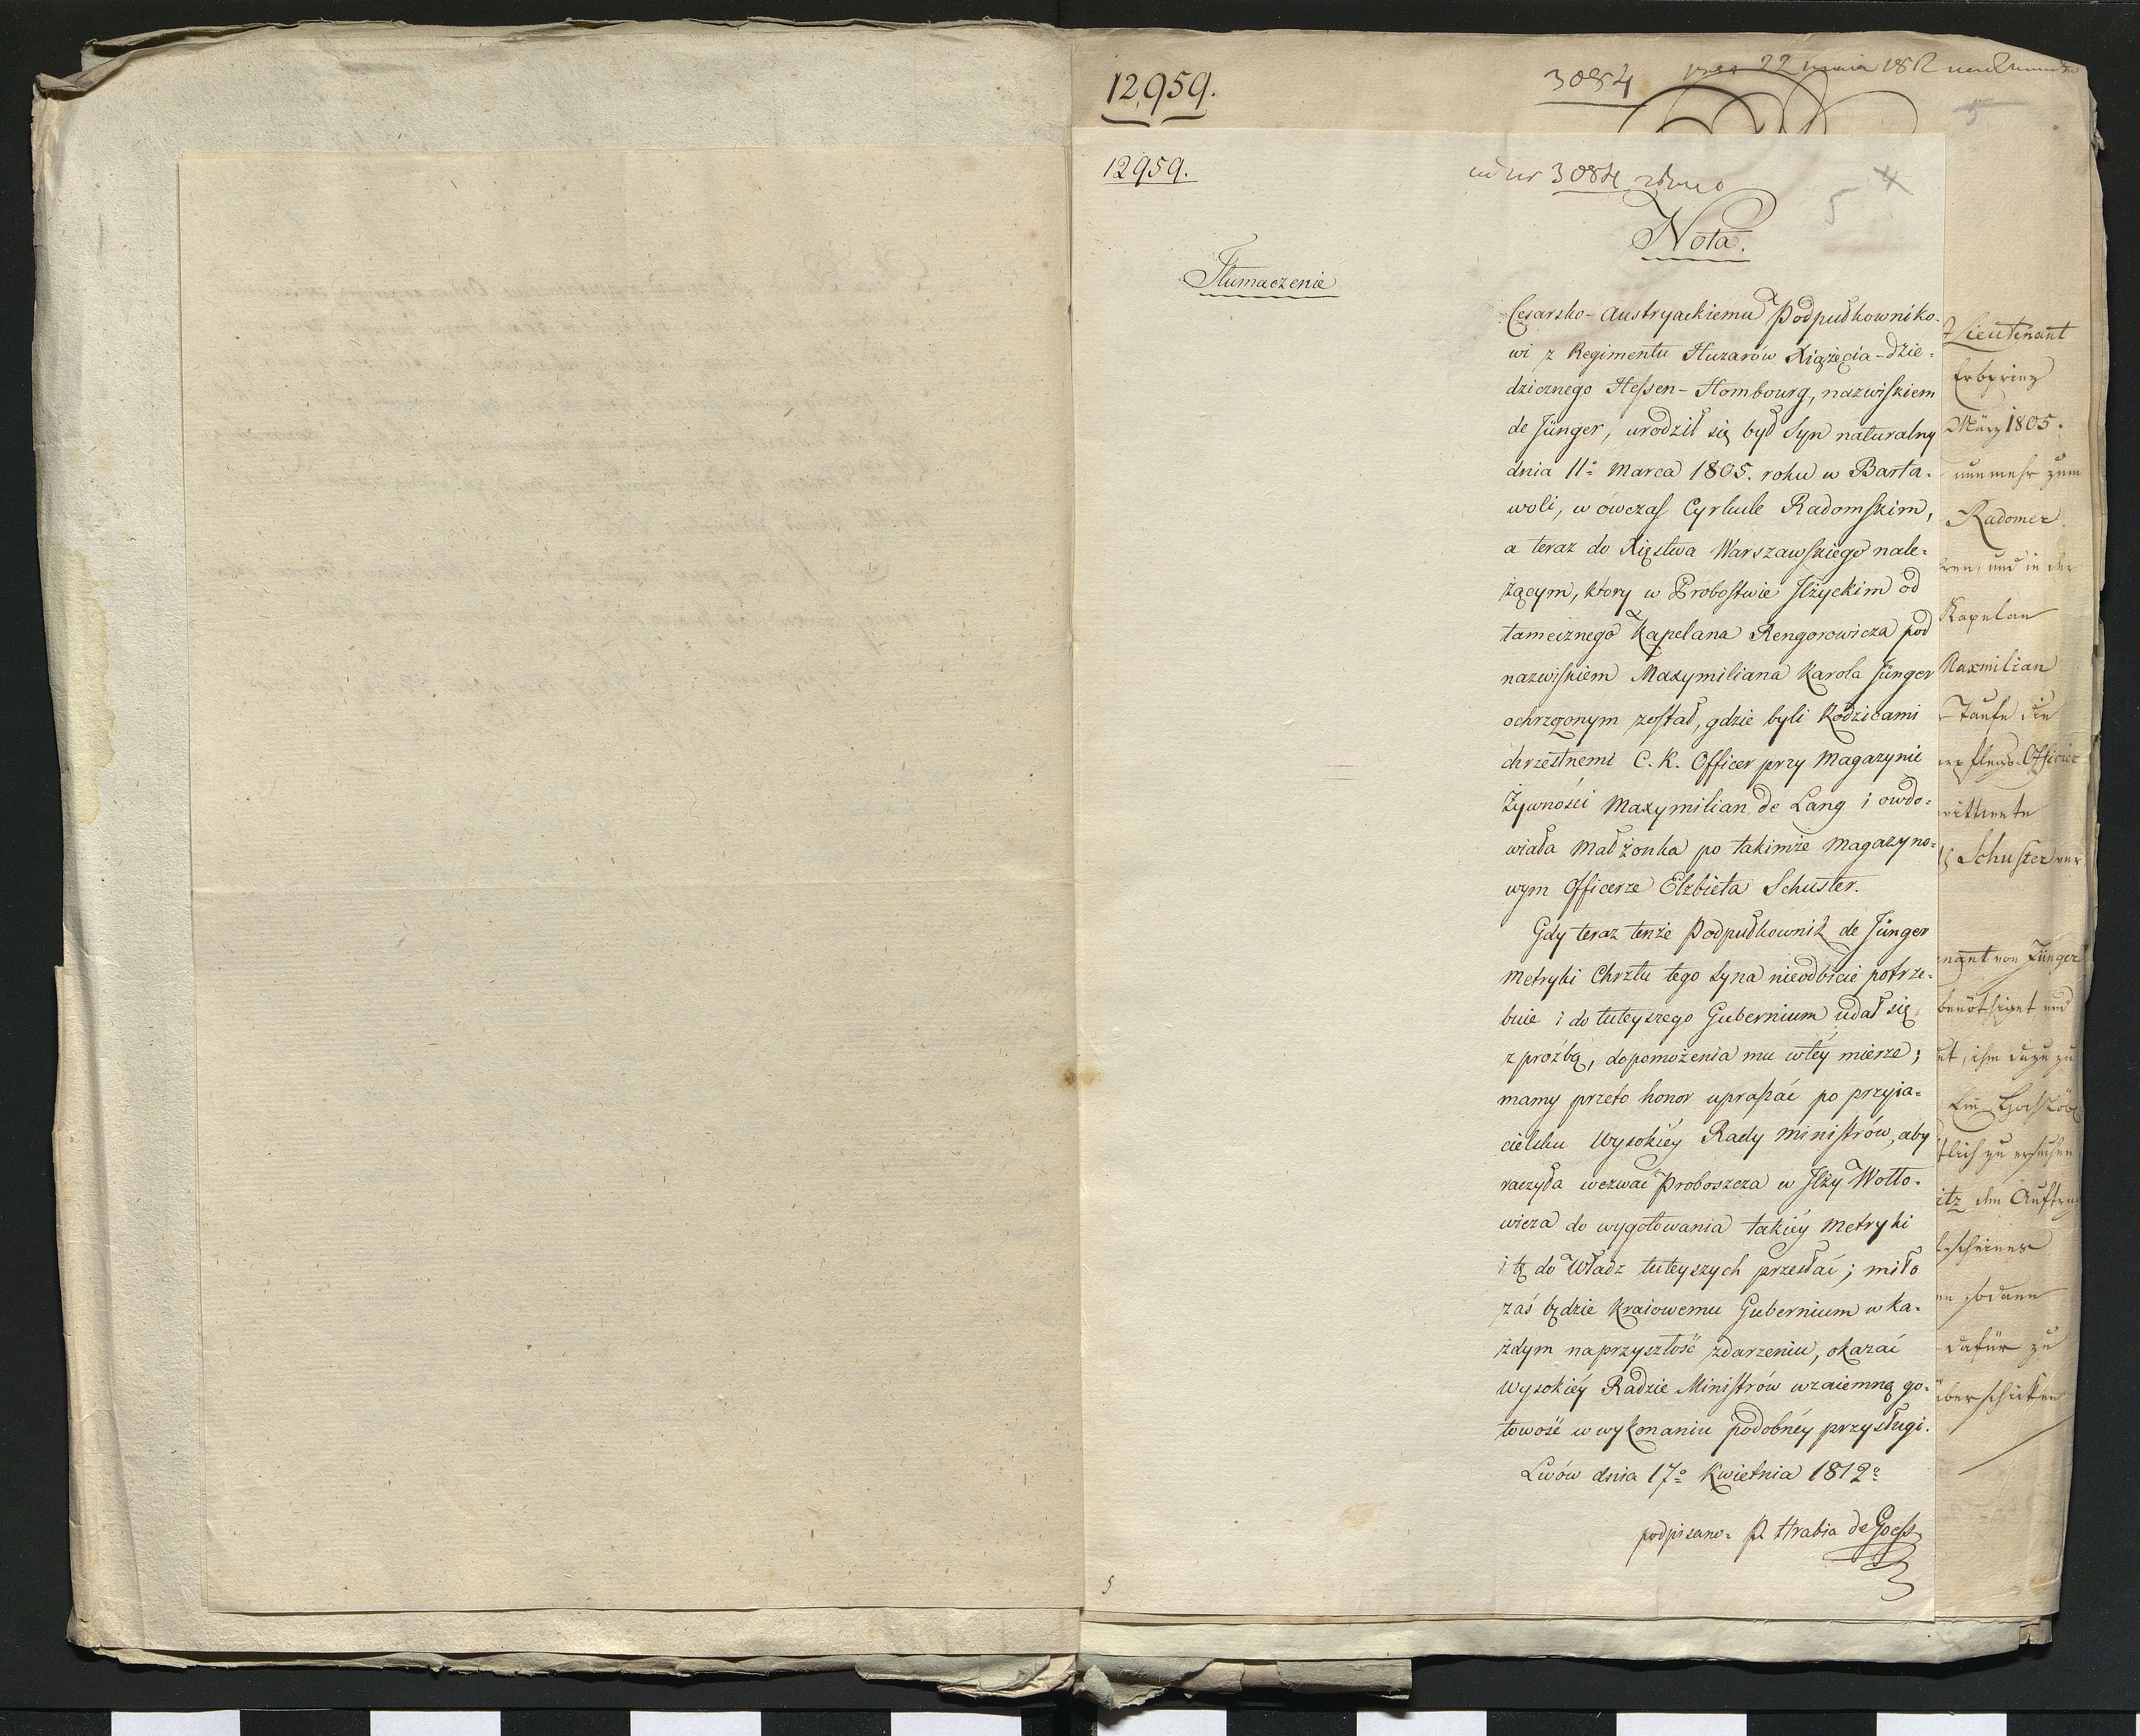 12,959.
3084
pres 22 maia 1812
5
12959.
ad nr 3084
5 4
Nota.
Tłumaczenie
Cesarsko-Austryackiemu Podpułkowniko-
wi z Regimentu Huzarów Xiążęcia-dzie-
dzicznego Hessen-Hombourg, nazwiskiem
de Jünger, urodził się był Syn naturalny
dnia 11º Marca 1805. roku w Barta-
woli, w ówczas Cyrkule Radomskim,
a teraz do Xięstwa Warszawskiego nale-
żącym, ktory w Probostwie Jłżyckim od
tamecznego Kapelana Rengorowicza pod
nazwiskiem Maxymiliana Karola Jünger
ochrzconym został, gdzie byli Rodzicami
chrzestnemi C. K. Officer przy Magazynie
Żywności Maxymilian de Lang i owdo-
wiała Małżonka po takimże Magazyno-
wym Officerze Elzbieta Schuster.
Gdy teraz tenże Podpułkownik de Jünger
Metryki Chrztu tego Syna nieodbicie potrze-
buie i do tuteyszego Gubernium udał się
z proźbą, dopomożenia mu w téy mierze;
mamy przeto honor upraszać po przyia-
cielsku Wysokiéy Rady Ministrów, aby
raczyła wezwać Proboszcza w Jłży Wotto-
wicza do wygotowania takiéy Metryki
i tę do Władz tuteyszych przesłać; miło
zaś będzie Kraiowemu Gubernium w ka-
żdym na przyszłość zdarzeniu, okazać
Wysokiéy Radzie Ministrów wzaiemną go-
towość w wykonaniu podobnéy przysługi.
Lwów dnia 17º Kwietnia 1812º
podpisano: P. Hrabia de Goess
5
Lieutenant
Erbprinz
März 1805.
nunmehr zum
Radomer
und in der
Kapelan
Maxmilian
Taufe die
Officier
Schuster
von Jünger
benöthiget und
ihm dazu zu
zu ersuchen
itz den Auftrag
scheines
sodann
dafür zu
überschicken